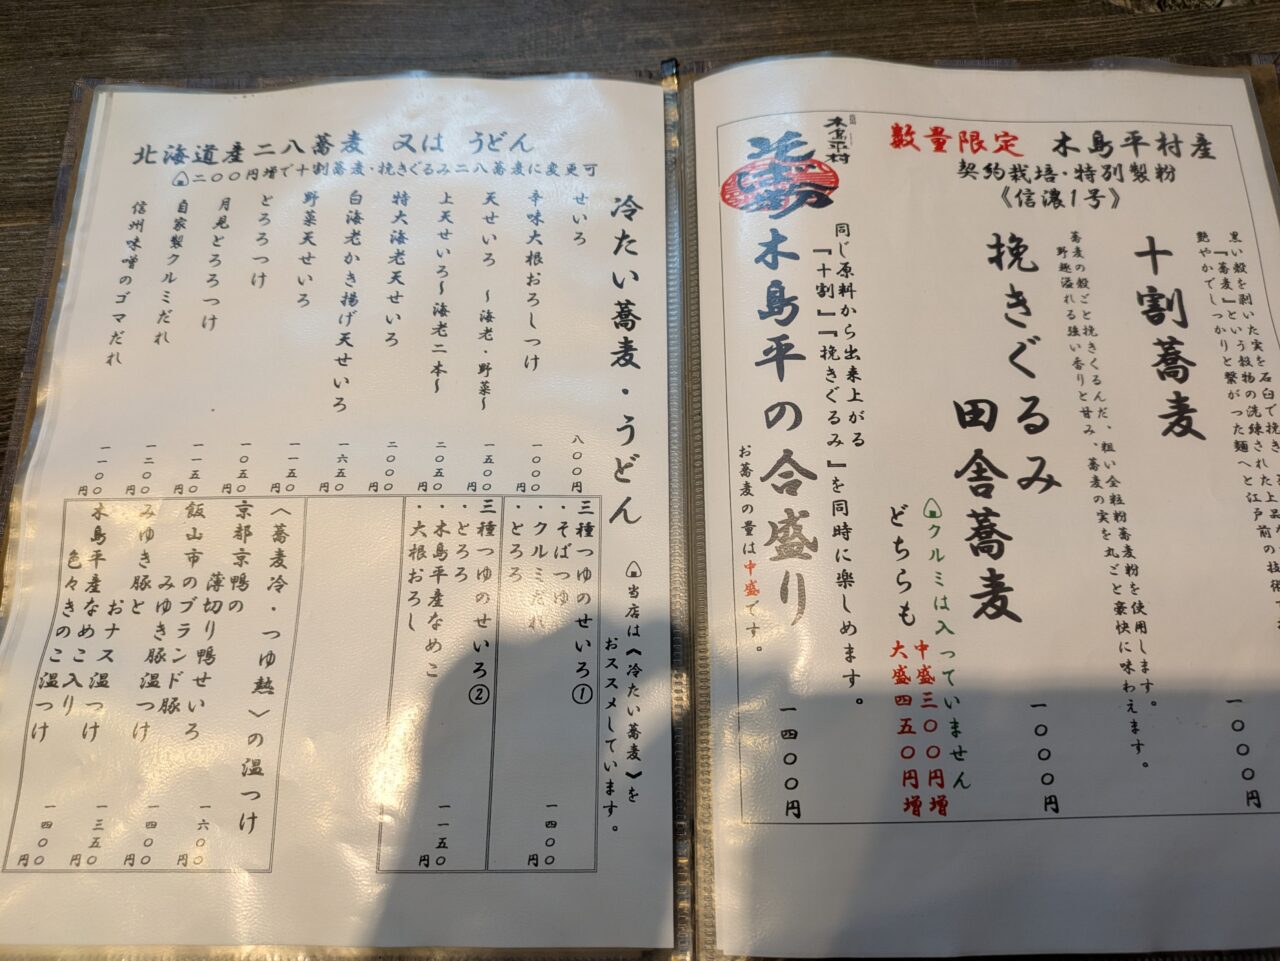 数量限定 木島平村産
契約栽培・特別製粉
《信濃1号》
黒い殻を剥いた実を石臼で挽き
『蕎麦』という穀物の洗練された上品な
艶やかでしっかりと繋がった麺へと江戸前の技術
十割蕎麦
一〇〇〇円
蕎麦の殻ごと挽きくるんだ、粗い全粒粉蕎麦粉を使用します。
野趣溢れる強い香りと甘み、蕎麦の実を丸ごと豪快に味わえます。
挽きぐるみ
田舎蕎麦
一〇〇〇円
クルミは入っていません
どちらも 中盛三〇〇円増
大盛四五〇円増
同じ原料から出来上がる
『十割』『挽きぐるみ』を同時に楽しめます。
木島平村
木島平の合盛り
お蕎麦の量は中盛です。
一四〇〇円
北海道産二八蕎麦 又は うどん
二〇〇円増で十割蕎麦・挽きぐるみ二八蕎麦に変更可
冷たい蕎麦・うどん
当店は《冷たい蕎麦》を
おススメしています。
せいろ 八〇〇円
辛味大根おろしつけ 一〇〇〇円
天せいろ 〜海老・野菜〜 一五〇〇円
上天せいろ〜海老二本〜 二〇五〇円
特大海老天せいろ 二〇〇〇円
白海老かき揚げ天せいろ 一六五〇円
野菜天せいろ 一一五〇円
とろろつけ 一〇五〇円
月見とろろつけ 一一五〇円
自家製クルミだれ 一二〇〇円
信州味噌のゴマだれ 一一〇〇円
三種つゆのせいろ①
・そばつゆ
・クルミだれ
・とろろ
一四〇〇円
三種つゆのせいろ②
・とろろ
・木島平産なめこ
・大根おろし
一一五〇円
〈蕎麦冷・つゆ熱〉の温つけ
京都京鴨の
薄切り鴨せいろ
一六〇〇円
飯山市のブランド豚
みゆき豚温つけ
一四〇〇円
みゆき豚と
おナス温つけ
一三五〇円
木島平産なめこ入り
色々きのこ温つけ
一四〇〇円